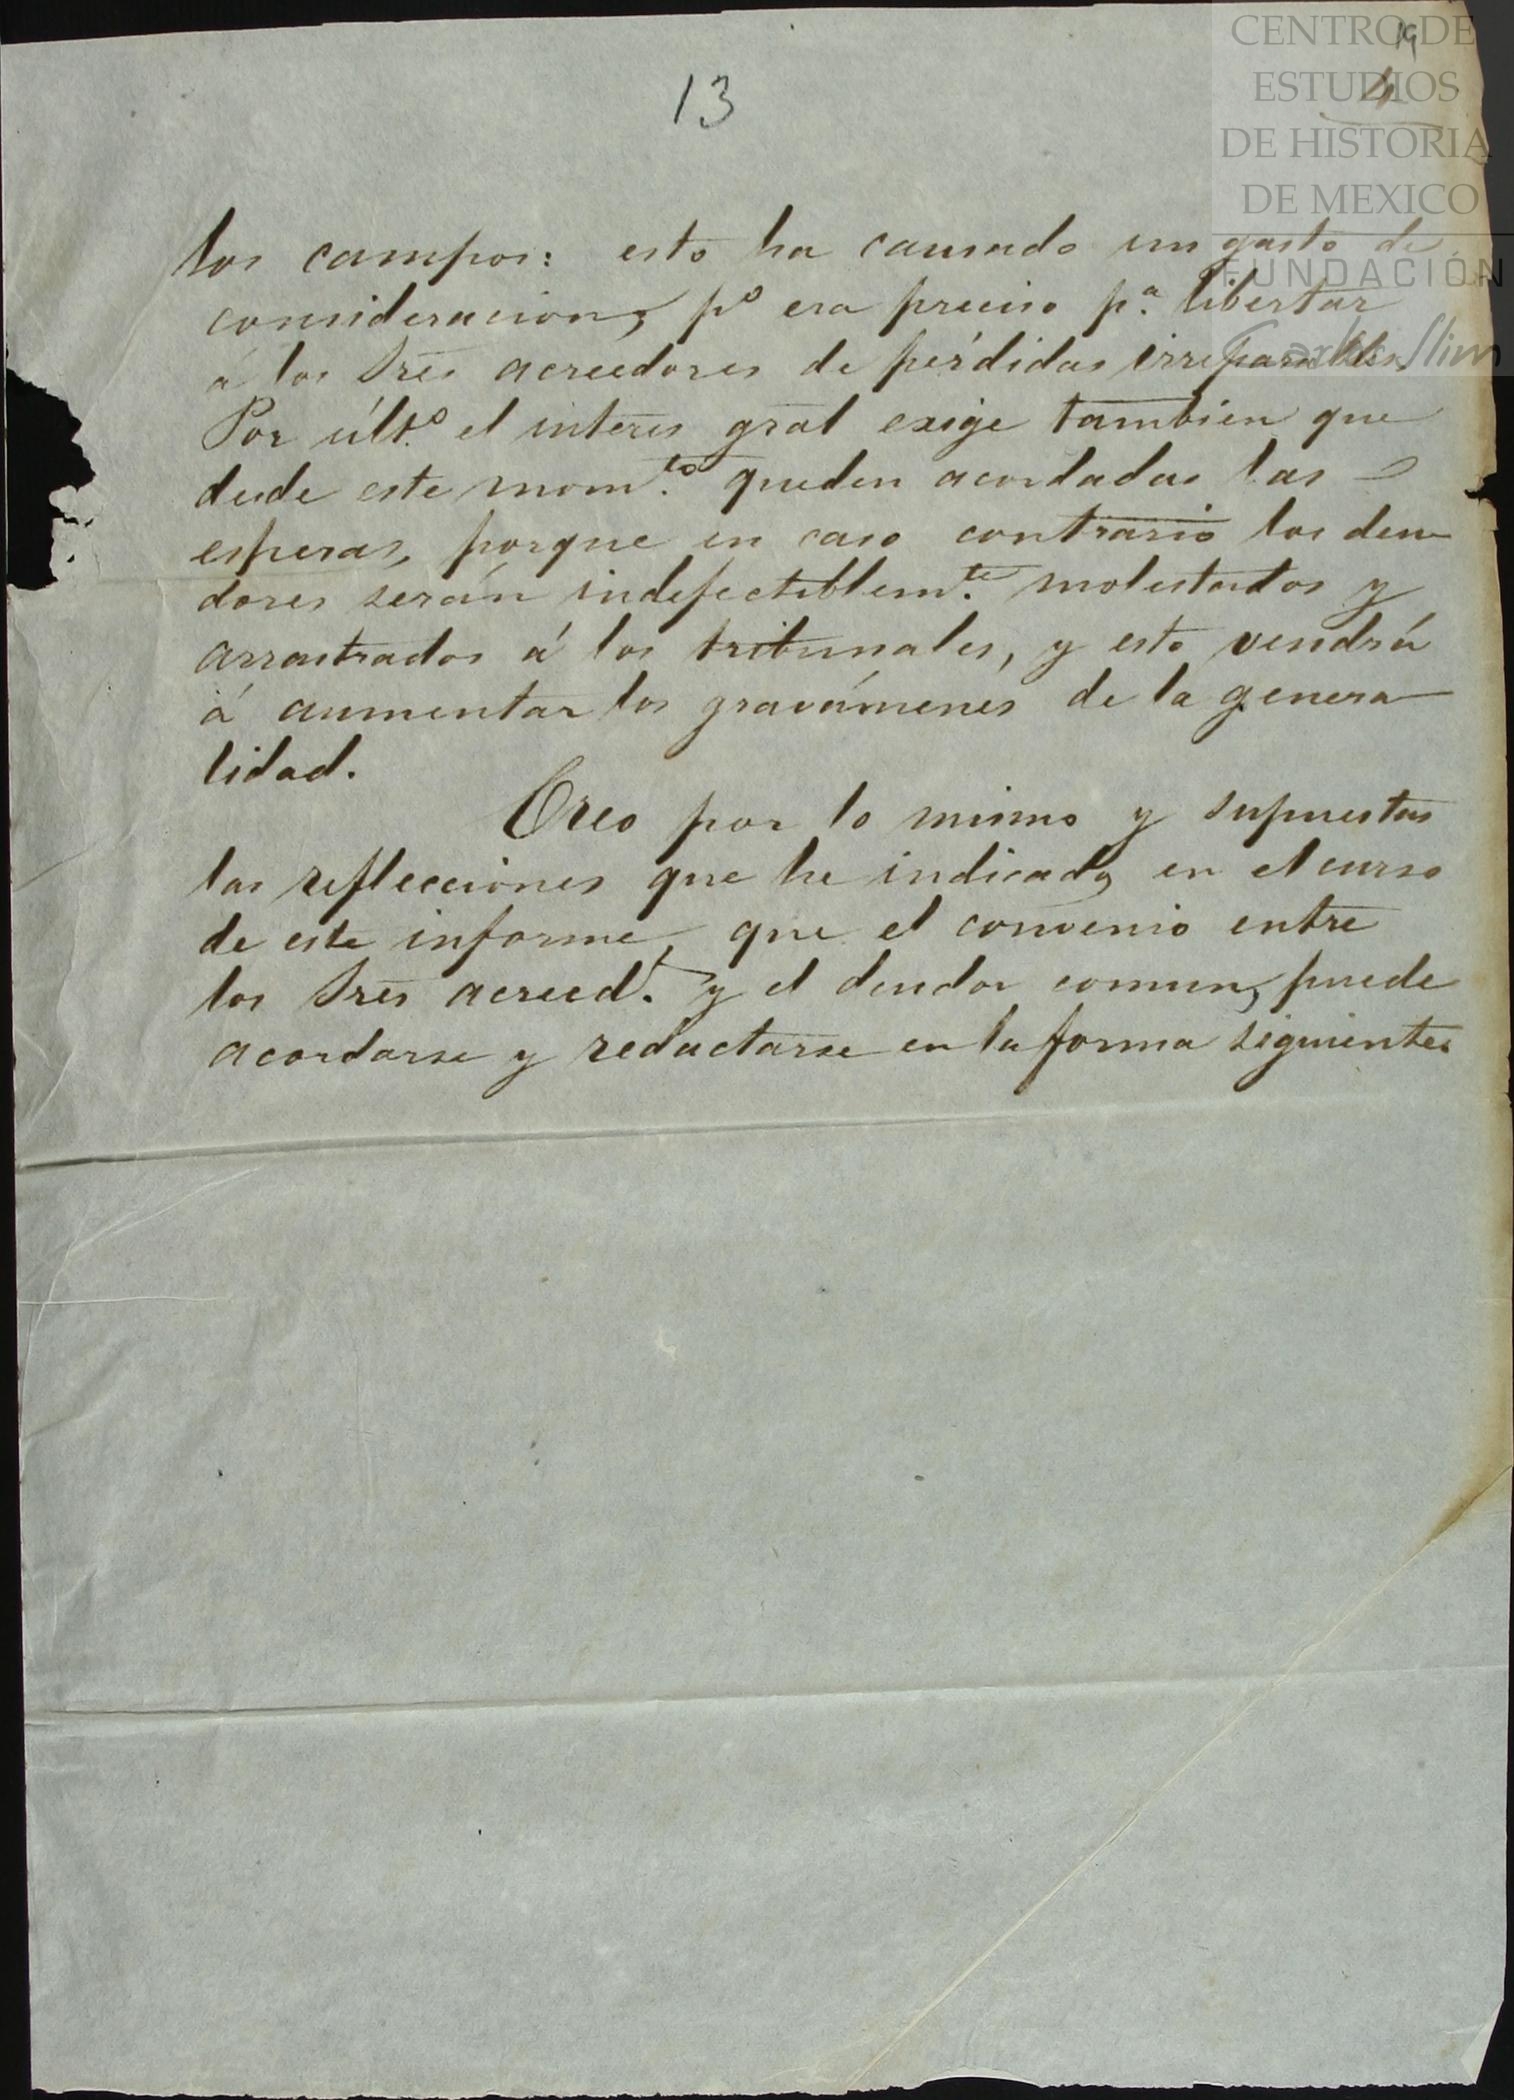 CENTRO DE
ESTUDIOS
DE HISTORIA
DE MEXICO
FUNDACIÓN
Carlos Slim
19
13
los campos: esto ha causado un gasto de
consideracion, pº era preciso pª. libertar
á los Sres acreedores de perdidas irreparables.
Por últº. el interes gral exige tambien que
desde este momto. queden acordadas las
esperas, porque en caso contrario los deu
dores serán indefectiblemte. molestados y
arrastrados á los tribunales, y esto vendrá
á aumentar los gravámenes de la genera
lidad.
Creo por lo mismo y supuestas
las reflecciones que he indicado, en el curso
de este informe, que el convenio entre
los Sres acreed.s y el deudor comun, puede
acordarse y redactarse en la forma siguiente.